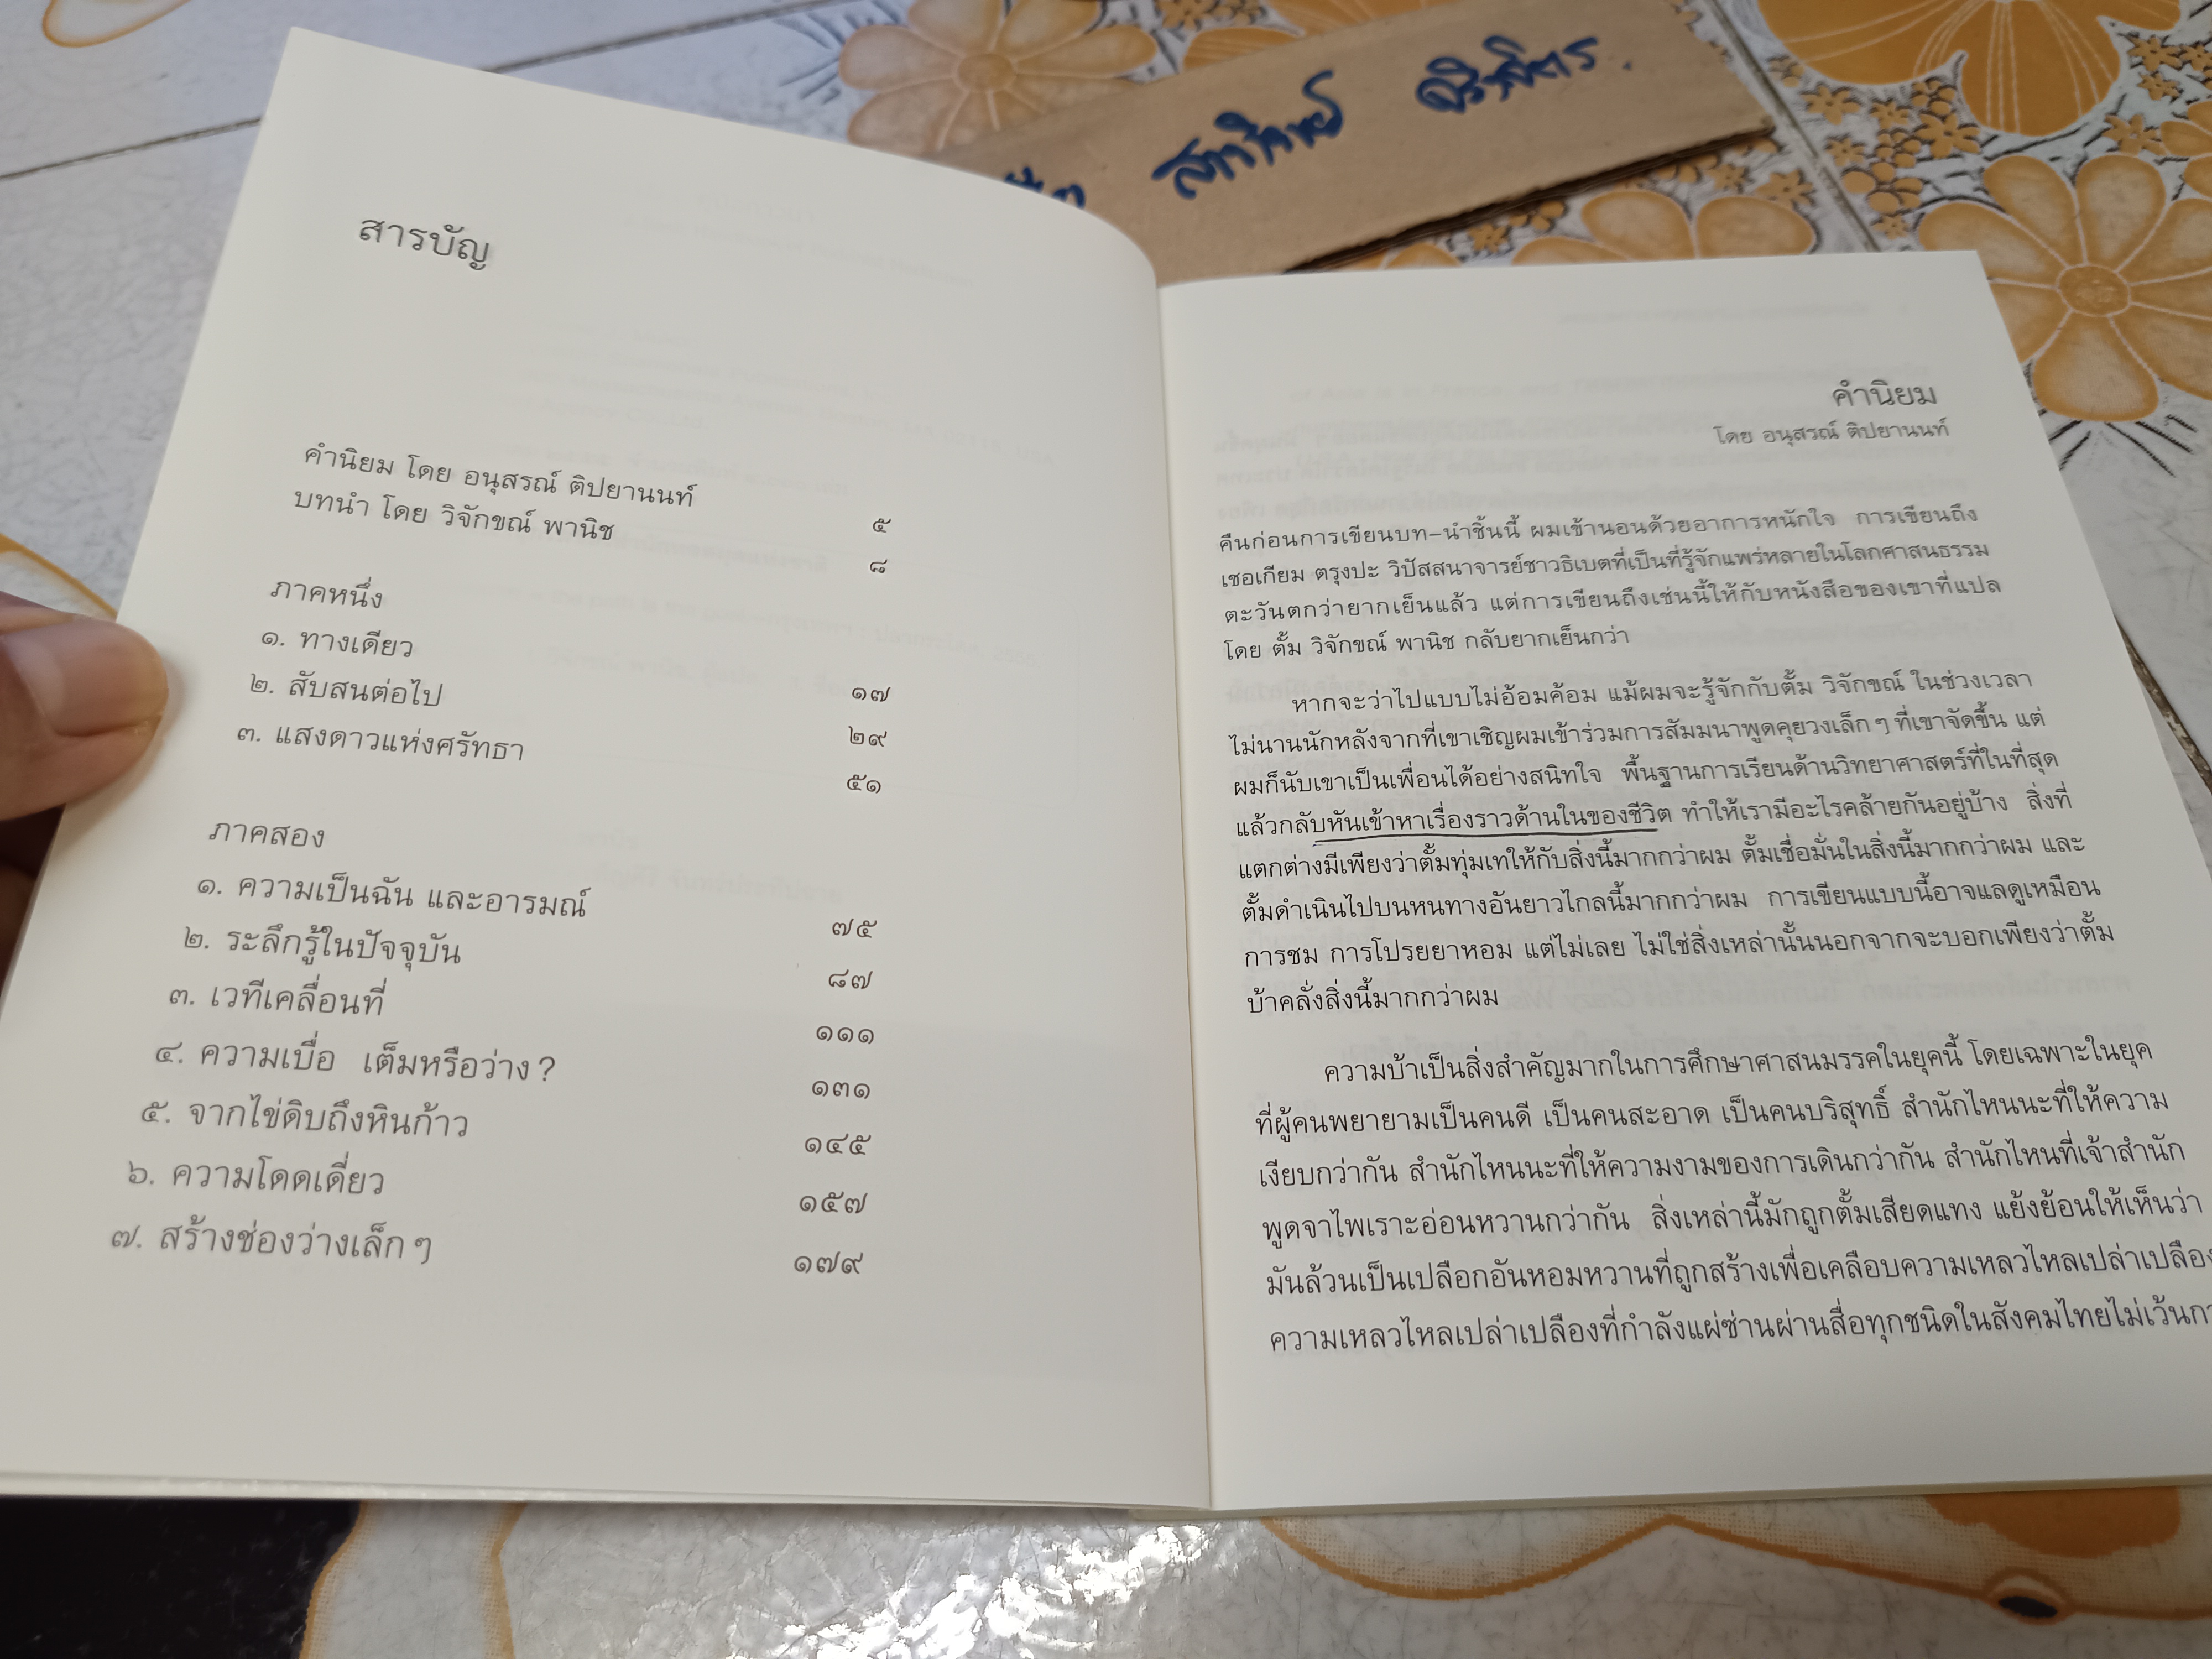 สารบัญ
คำนิยม โดย อนุสรณ์ ติปยานนท์ ๕
บทนำ โดย วิจักขณ์ พานิช ๘
ภาคหนึ่ง
๑. ทางเดียว ๑๗
๒. สับสนต่อไป ๒๙
๓. แสงดาวแห่งศรัทธา ๕๑
ภาคสอง
๑. ความเป็นฉัน และอารมณ์ ๗๕
๒. ระลึกรู้ในปัจจุบัน ๘๗
๓. เวทีเคลื่อนที่ ๑๑๑
๔. ความเบื่อ เต็มหรือว่าง ? ๑๓๑
๕. จากไข่ดิบถึงหินก้าว ๑๔๕
๖. ความโดดเดี่ยว ๑๕๗
๗. สร้างช่องว่างเล็ก ๆ ๑๗๙
คำนิยม
โดย อนุสรณ์ ติปยานนท์
คืนก่อนการเขียนบท–นำชิ้นนี้ ผมเข้านอนด้วยอาการหนักใจ การเขียนถึง
เชอเกียม ตรุงปะ วิปัสสนาจารย์ชาวธิเบตที่เป็นที่รู้จักแพร่หลายในโลกศาสนธรรม
ตะวันตกว่ายากเย็นแล้ว แต่การเขียนถึงเช่นนี้ให้กับหนังสือของเขาที่แปล
โดย ตั้ม วิจักขณ์ พานิช กลับยากเย็นกว่า
หากจะว่าไปแบบไม่อ้อมค้อม แม้ผมจะรู้จักกับตั้ม วิจักขณ์ ในช่วงเวลา
ไม่นานนักหลังจากที่เขาเชิญผมเข้าร่วมการสัมมนาพูดคุยวงเล็ก ๆ ที่เขาจัดขึ้น แต่
ผมก็นับเขาเป็นเพื่อนได้อย่างสนิทใจ พื้นฐานการเรียนด้านวิทยาศาสตร์ที่ในที่สุด
แล้วกลับหันเข้าหาเรื่องราวด้านในของชีวิต ทำให้เรามีอะไรคล้ายกันอยู่บ้าง สิ่งที่
แตกต่างมีเพียงว่าตั้มทุ่มเทให้กับสิ่งนี้มากกว่าผม ตั้มเชื่อมั่นในสิ่งนี้มากกว่าผม และ
ตั้มดำเนินไปบนหนทางอันยาวไกลนี้มากกว่าผม การเขียนแบบนี้อาจแลดูเหมือน
การชม การโปรยยาหอม แต่ไม่เลย ไม่ใช่สิ่งเหล่านั้นนอกจากจะบอกเพียงว่าตั้ม
บ้าคลั่งสิ่งนี้มากกว่าผม
ความบ้าเป็นสิ่งสำคัญมากในการศึกษาศาสนมรรคในยุคนี้ โดยเฉพาะในยุค
ที่ผู้คนพยายามเป็นคนดี เป็นคนสะอาด เป็นคนบริสุทธิ์ สำนักไหนนะที่ให้ความ
เงียบกว่ากัน สำนักไหนนะที่ให้ความงามของการเดินกว่ากัน สำนักไหนที่เจ้าสำนัก
พูดจาไพเราะอ่อนหวานกว่ากัน สิ่งเหล่านี้มักถูกตั้มเสียดแทง แย้งย้อนให้เห็นว่า
มันล้วนเป็นเปลือกอันหอมหวานที่ถูกสร้างเพื่อเคลือบความเหลวไหลเปล่าเปลือง
ความเหลวไหลเปล่าเปลืองที่กำลังแผ่ซ่านผ่านสื่อทุกชนิดในสังคมไทยไม่เว้น